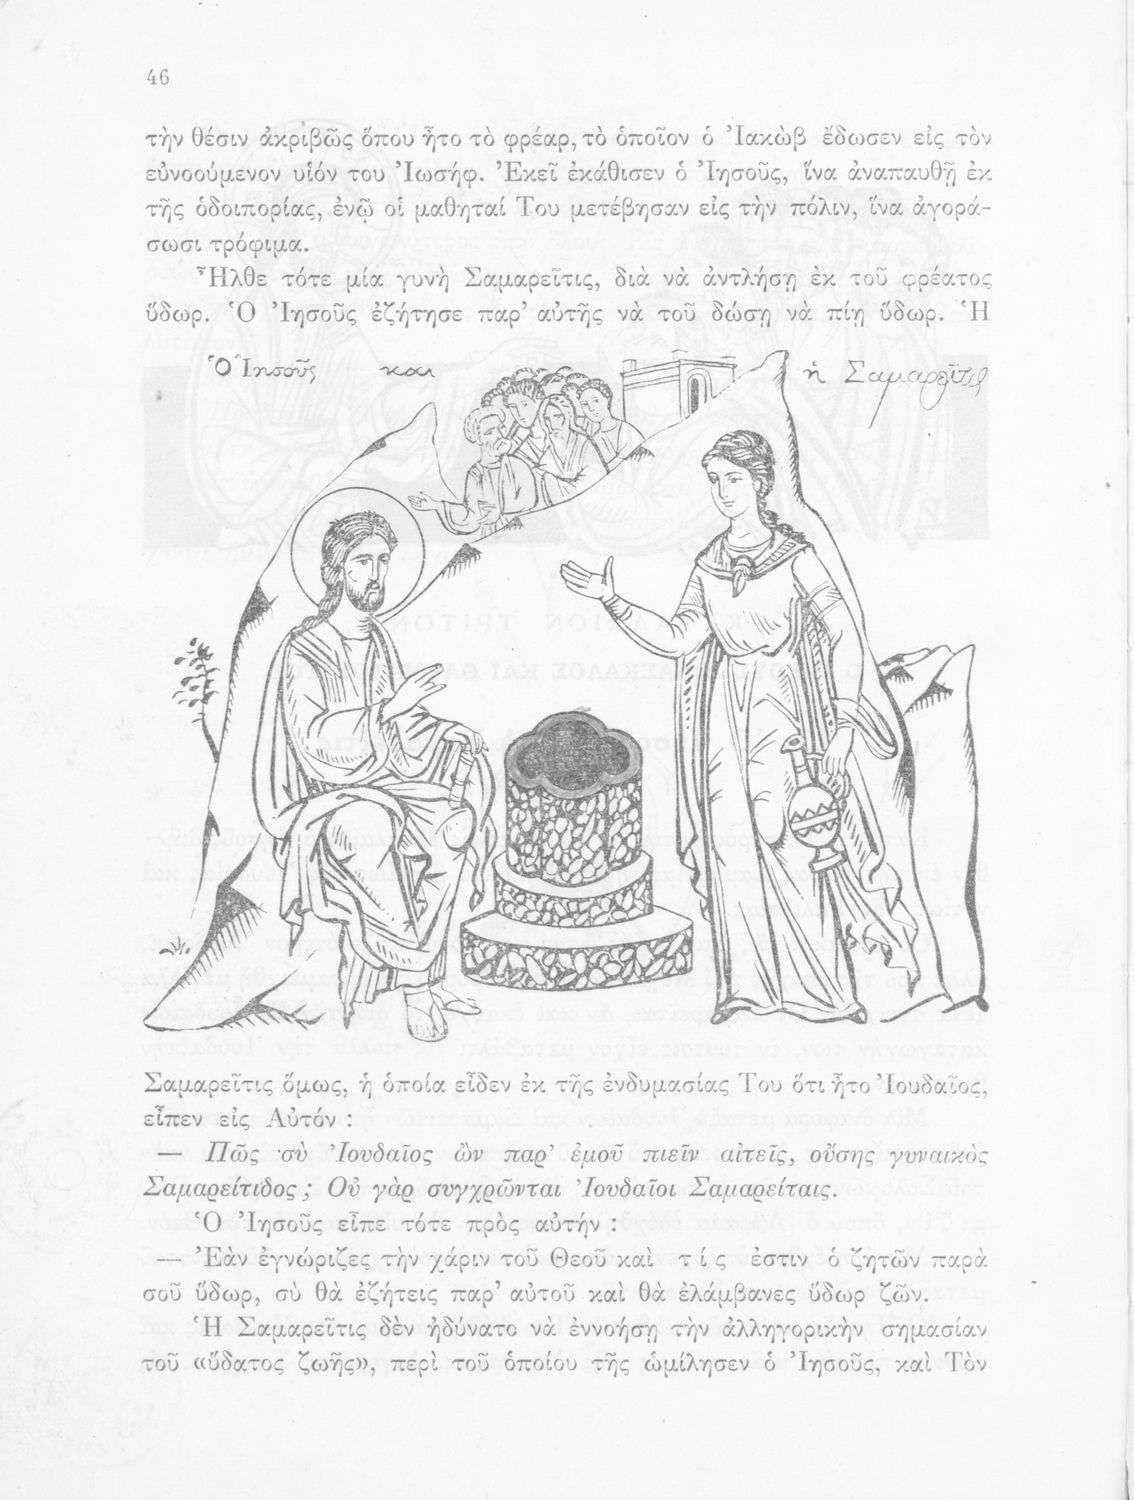 46
τὴν θέσιν ἀκριβῶς ὅπου ἦτο τὸ φρέαρ, τὸ ὁποῖον ὁ Ἰακὼβ ἔδωσεν εἰς τὸν
εὐνοούμενον υἱόν του Ἰωσήφ. Ἐκεῖ ἐκάθισεν ὁ Ἰησοῦς, ἵνα ἀναπαυθῇ ἐκ
τῆς ὁδοιπορίας, ἐνῷ οἱ μαθηταί Του μετέβησαν εἰς τὴν πόλιν, ἵνα ἀγορά-
σωσι τρόφιμα.
Ἦλθε τότε μία γυνὴ Σαμαρεῖτις, διὰ νὰ ἀντλήσῃ ἐκ τοῦ φρέατος
ὕδωρ. Ὁ Ἰησοῦς ἐζήτησε παρ’ αὐτῆς νὰ τοῦ δώσῃ νὰ πίῃ ὕδωρ. Ἡ
Ὁ Ἰησοῦς και ἡ Σαμαρεῖτις
Σαμαρεῖτις ὅμως, ἡ ὁποία εἶδεν ἐκ τῆς ἐνδυμασίας Του ὅτι ἦτο Ἰουδαῖος,
εἶπεν εἰς Αὐτόν :
— Πῶς σὺ Ἰουδαῖος ὢν παρ’ ἐμοῦ πιεῖν αἰτεῖς, οὔσης γυναικὸς
Σαμαρείτιδος ; Οὐ γὰρ συγχρῶνται Ἰουδαῖοι Σαμαρείταις.
Ὁ Ἰησοῦς εἶπε τότε πρὸς αὐτήν :
— Ἐὰν ἐγνώριζες τὴν χάριν τοῦ Θεοῦ καὶ τίς ἐστιν ὁ ζητῶν παρὰ
σοῦ ὕδωρ, σὺ θὰ ἐζήτεις παρ’ αὐτοῦ καὶ θὰ ἐλάμβανες ὕδωρ ζῶν.
Ἡ Σαμαρεῖτις δὲν ἠδύνατο νὰ ἐννοήσῃ τὴν ἀλληγορικὴν σημασίαν
τοῦ «ὕδατος ζωῆς», περὶ τοῦ ὁποίου τῆς ὡμίλησεν ὁ Ἰησοῦς, καὶ Τὸν